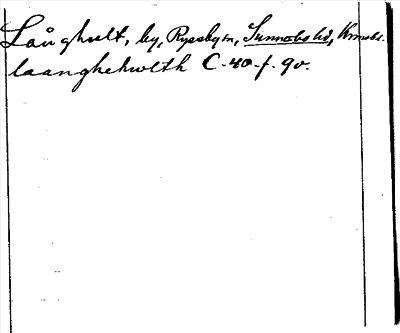 Långhult, by, Ryssbym, Sunnerbo hd, Kronobs.
laanghehwlth C-40-f. 9v.